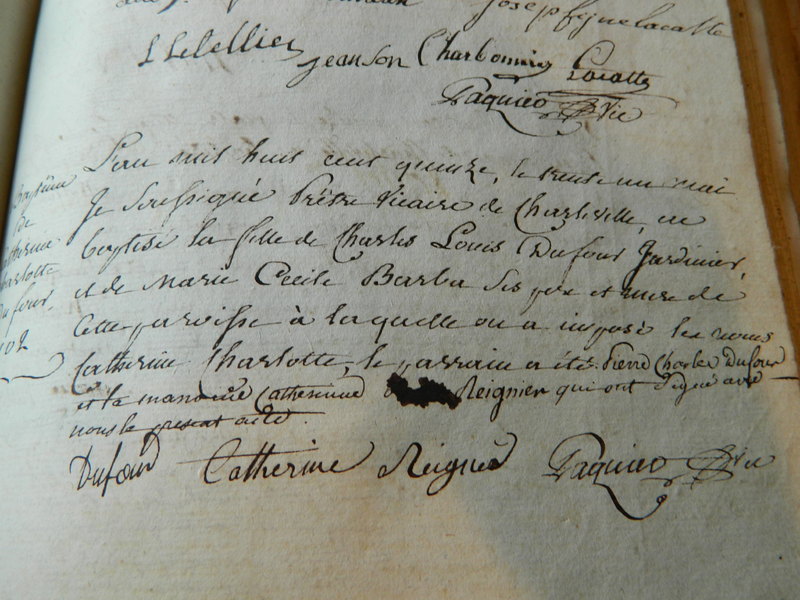 Joseph
L Letellier jeanson Charbonnier Lacatte
Paquier Vic
L'an mil huit cent quinze, le trente un mai
Je soussigné Prêtre Vicaire de Charleville, ai
baptisé la fille de Charles Louis Dufour Jardinier,
et de Marie Cecile Barba ses pere et mere de
cette paroisse à laquelle on a imposé les noms
Catherine Charlotte, le parrain a été Pierre Charles Dufour
et la marraine Catherine Reignier qui ont signé avec
nous le present acte.
Dufour Catherine Reignier Paquier Vic
baptême
de
atherine
harlotte
Dufour.
102